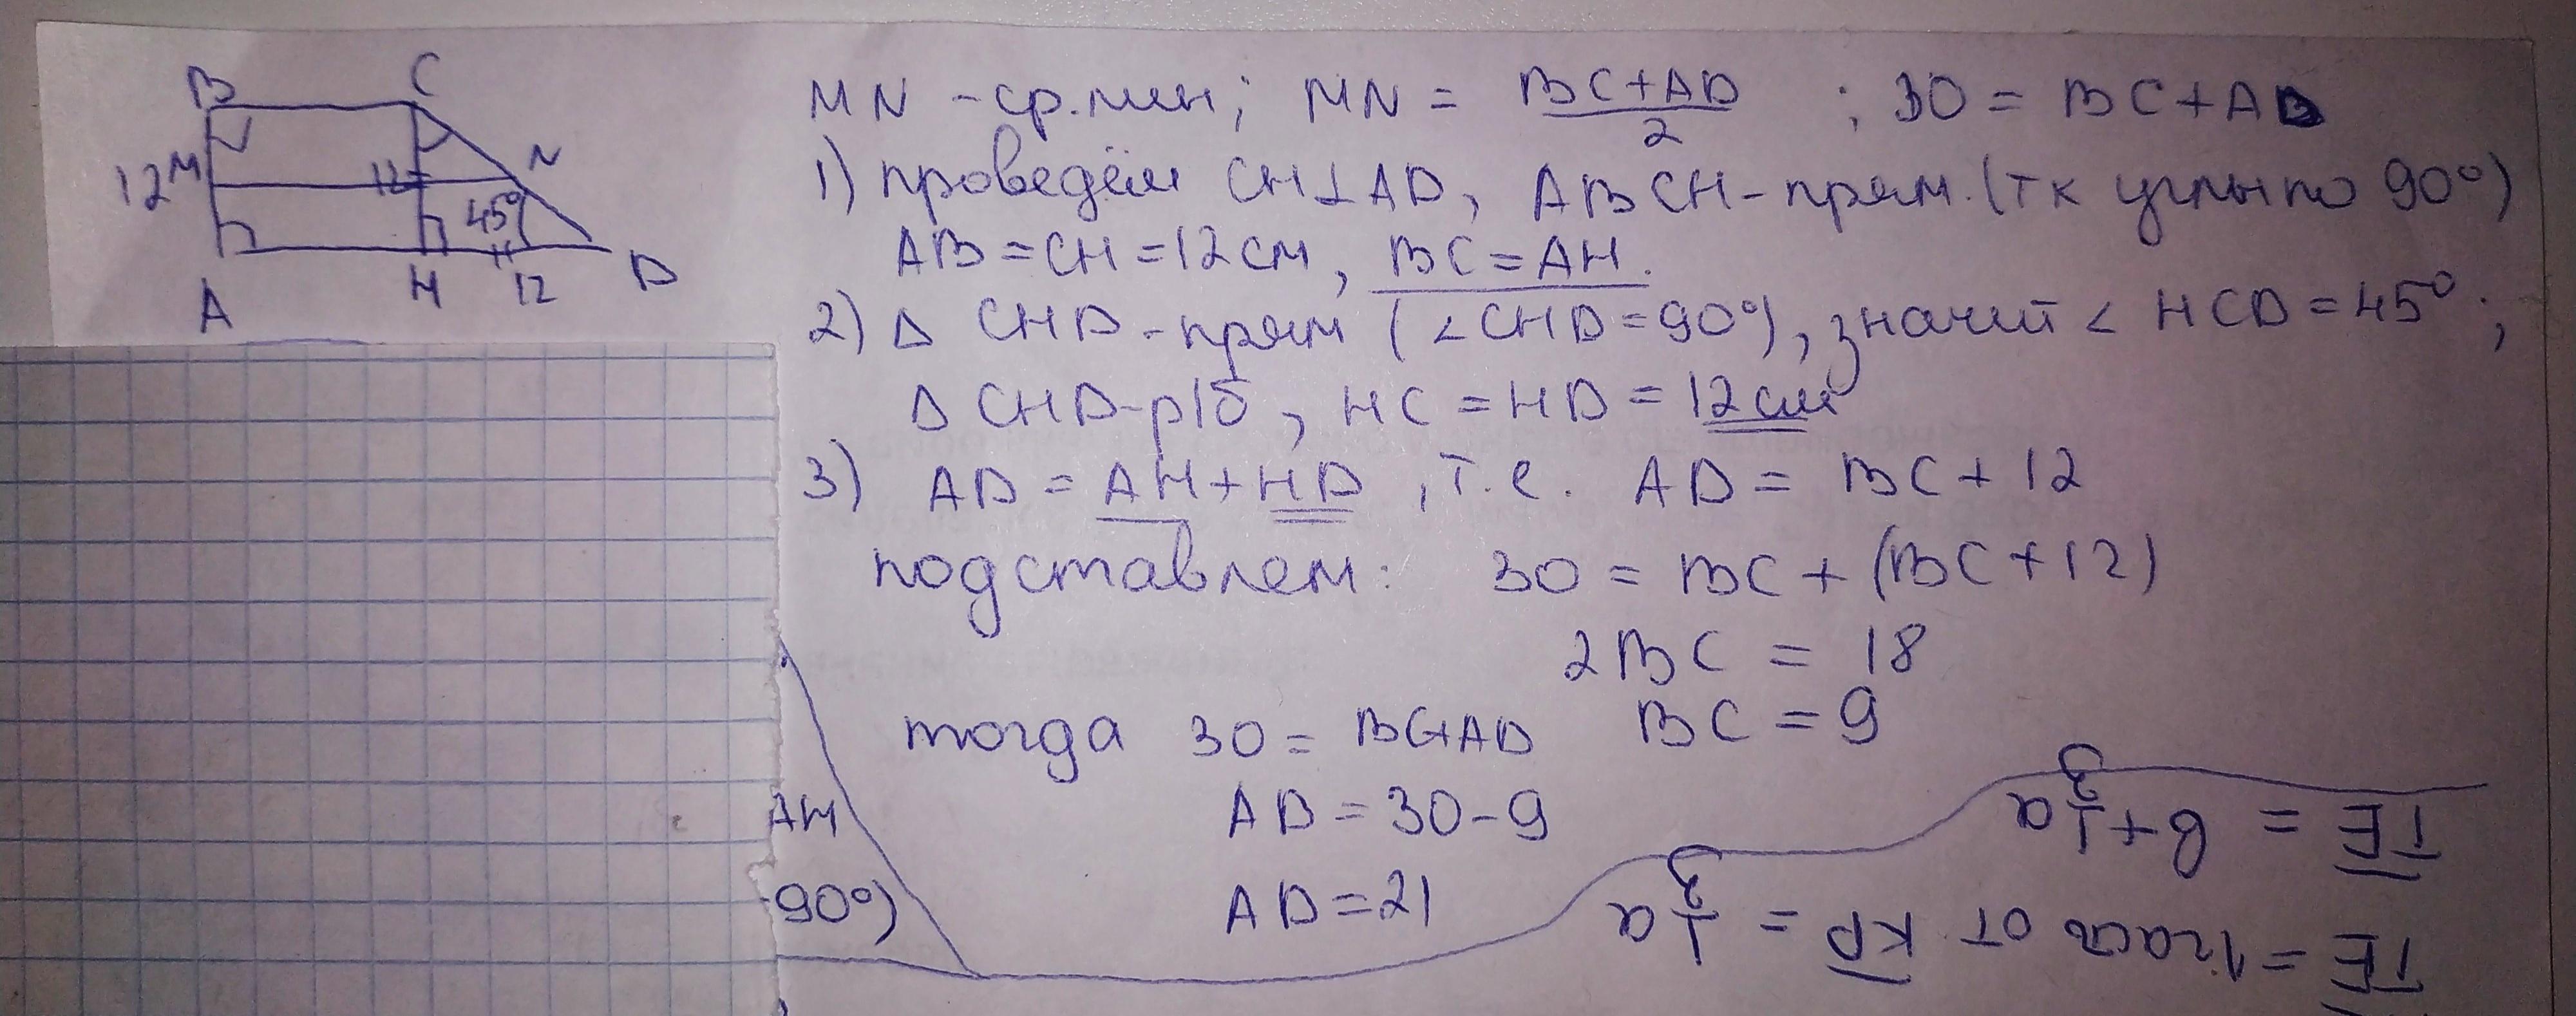 B C
12 M 12 N
45°
A H 12 D
MN - ср.лин; MN = BC+AD/2 ; 30 = BC+AD
1) проведём CH⊥AD, ABCH-прям.(тк углы по 90°)
AB=CH=12см, BC=AH.
2) Δ CHD-прям (∠CHD=90°), значит ∠ HCD=45°;
Δ CHD-р/б, HC=HD=12см
3) AD=AH+HD, т.е. AD= BC+12
подставлем: 30 = BC+(BC+12)
2BC = 18
BC=9
тогда 30= BC+AD
AD=30-9
AD=21
AH
90°)
TE = 1часть от KP = 1/3 a
TE = b+1/3 a